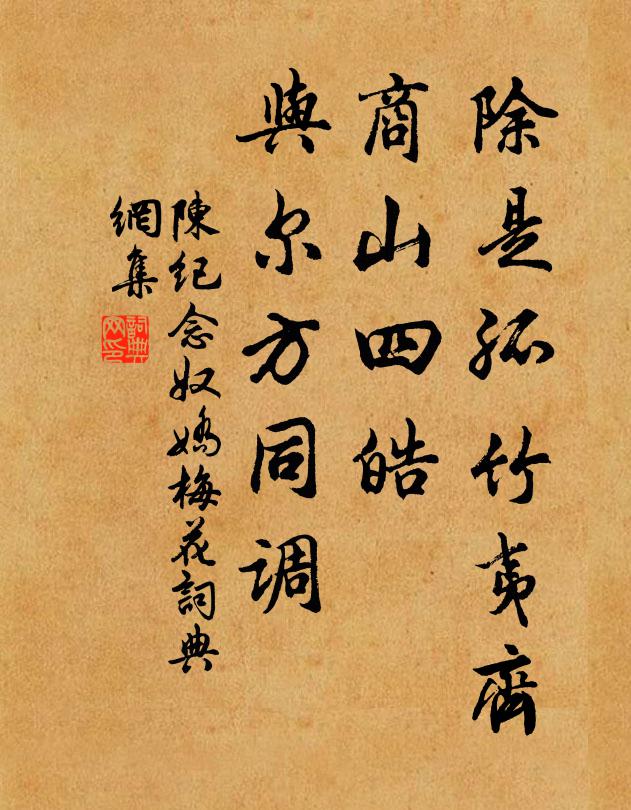 除是孤竹夷齊
商山四皓
與尔方同调
陳纪念奴嬌梅花詞典
網集
詞典网印